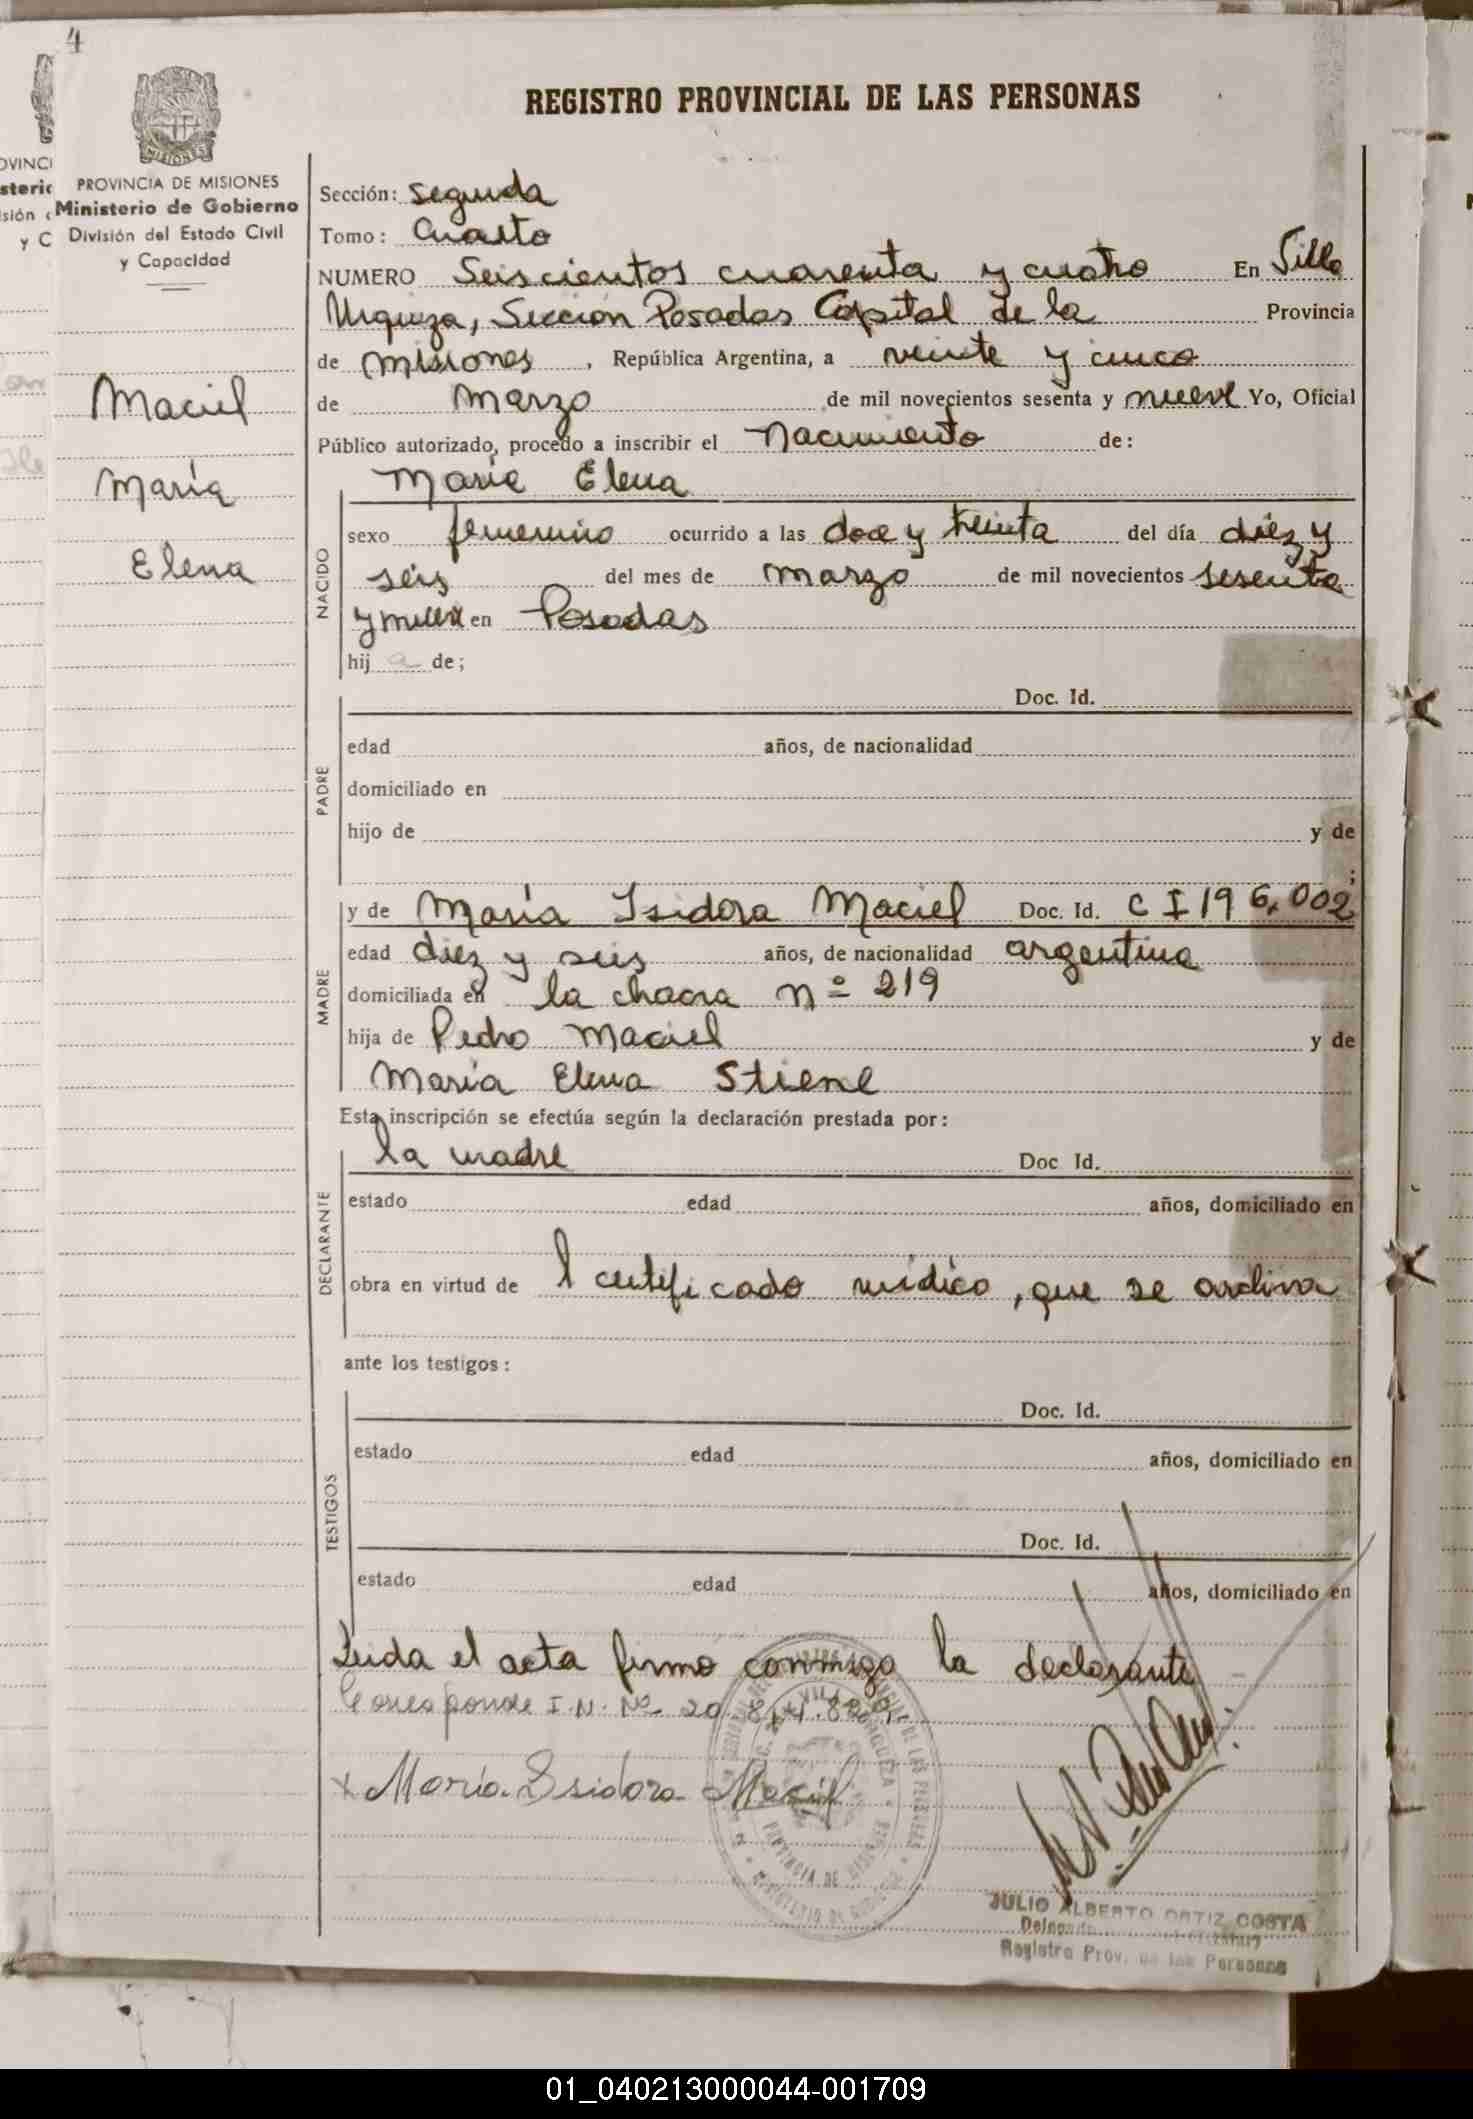 4
REGISTRO PROVINCIAL DE LAS PERSONAS
MISIONES
PROVINCIA DE MISIONES
Ministerio de Gobierno
División del Estado Civil
y Capacidad
Maciel
María
Elena
Sección: Segunda
Tomo: Cuarto
NUMERO Seiscientos cuarenta y cuatro En Villa
Urquiza, Sección Posadas Capital de la Provincia
de Misiones, República Argentina, a veinte y cinco
de Marzo de mil novecientos sesenta y nueve Yo, Oficial
Público autorizado, procedo a inscribir el Nacimiento de:
María Elena
NACIDO
sexo femenino ocurrido a las doce y treinta del día diez y
seis del mes de marzo de mil novecientos sesenta
y nueve en Posadas
hij a de;
PADRE
Doc. Id.
edad años, de nacionalidad
domiciliado en
hijo de y de
;
MADRE
y de María Isidora Maciel Doc. Id. C I 196.002
edad diez y seis años, de nacionalidad argentina
domiciliada en la chacra nº 219
hija de Pedro Maciel y de
María Elena Stiene
Esta inscripción se efectúa según la declaración prestada por:
DECLARANTE
la madre Doc Id.
estado edad años, domiciliado en
obra en virtud de l certificado médico, que se archiva
ante los testigos:
TESTIGOS
Doc. Id.
estado edad años, domiciliado en
Doc. Id.
estado edad años, domiciliado en
Leida el acta firmó conmigo la declarante
Corresponde I.N. Nº 20.
x María Isidora Maciel
PROVINCIA DE MISIONES
MINISTERIO DE GOBIERNO
JULIO ALBERTO ORTIZ COSTA
Delegado
Registro Prov. de las Personas
01_040213000044-001709